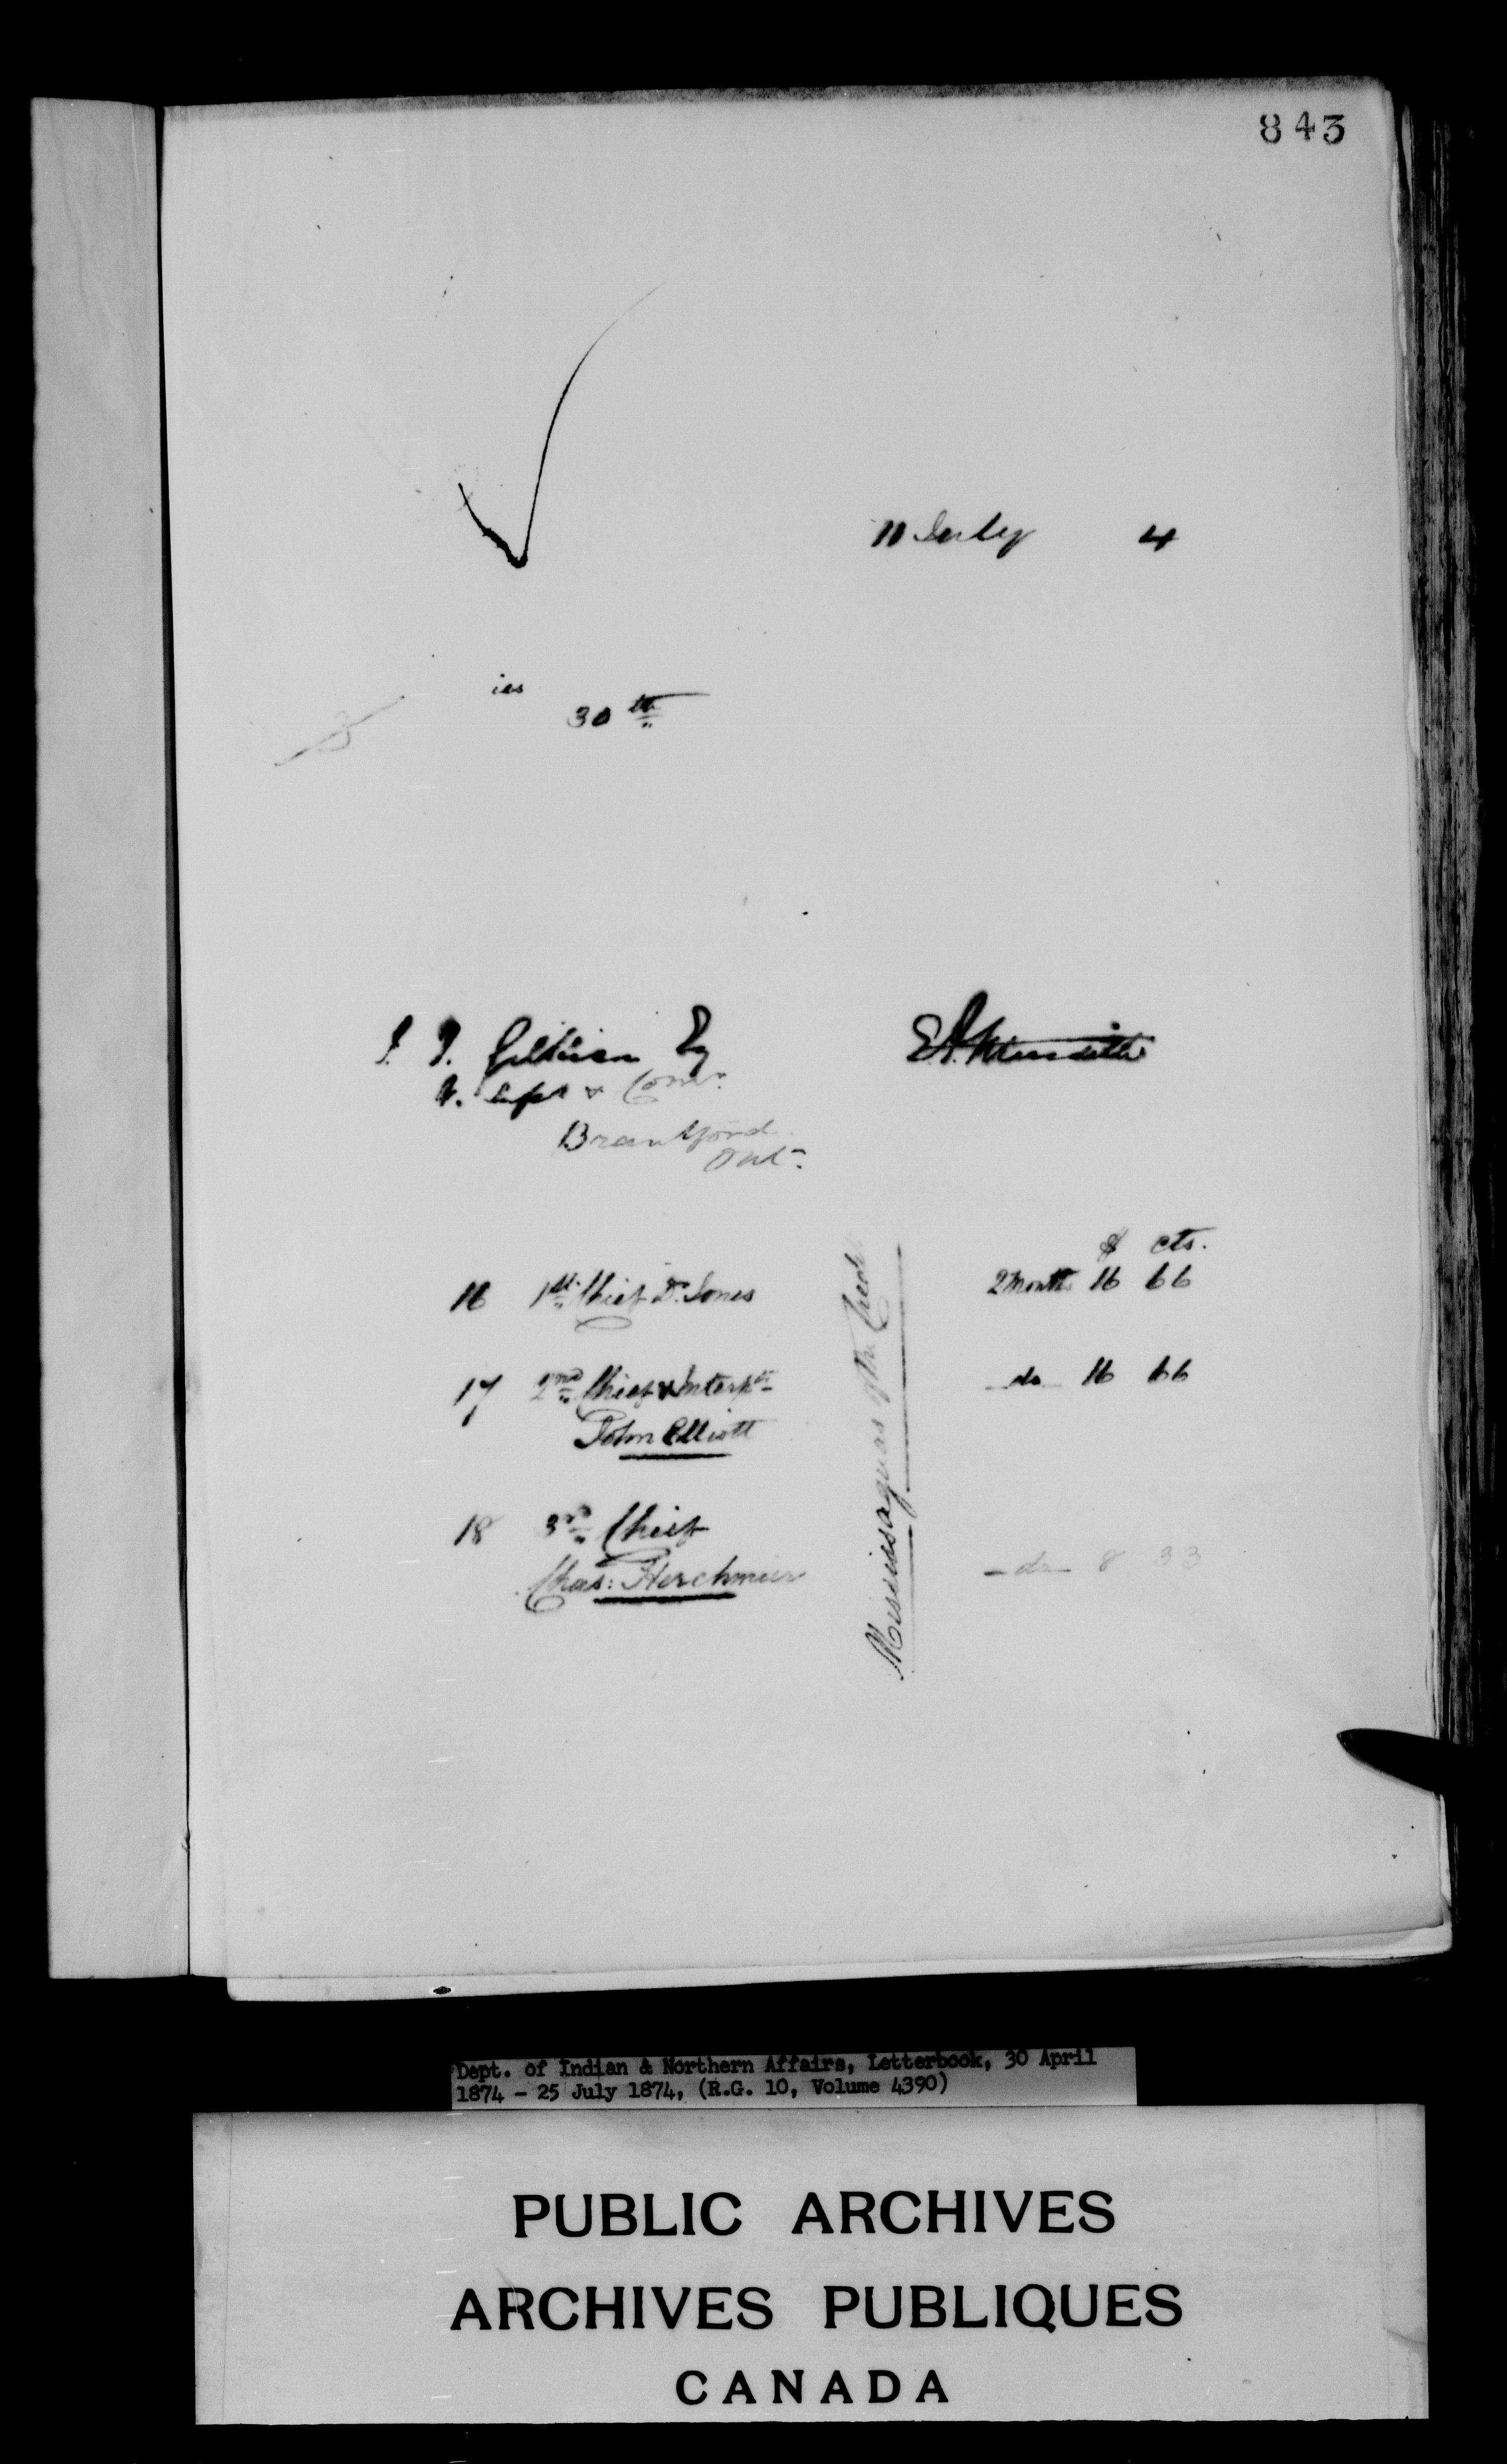 843
11 July 4
ies
30th
J. T. Gilkison Esq
V. Supt & Comr.
Brantford
Ont.
E A Meredith
$ cts.
16 1st Chief Dr. Jones 2 Months 16 66
17 2nd Chief & Interptr do 16 66
John Elliott
18 3rd Chief
Chas: Herchmer do 8 33
Mississaguas of the Credit
Dept. of Indian & Northern Affairs, Letterbook, 30 April
1874 - 25 July 1874, (R.G. 10, Volume 4390)
PUBLIC ARCHIVES
ARCHIVES PUBLIQUES
CANADA